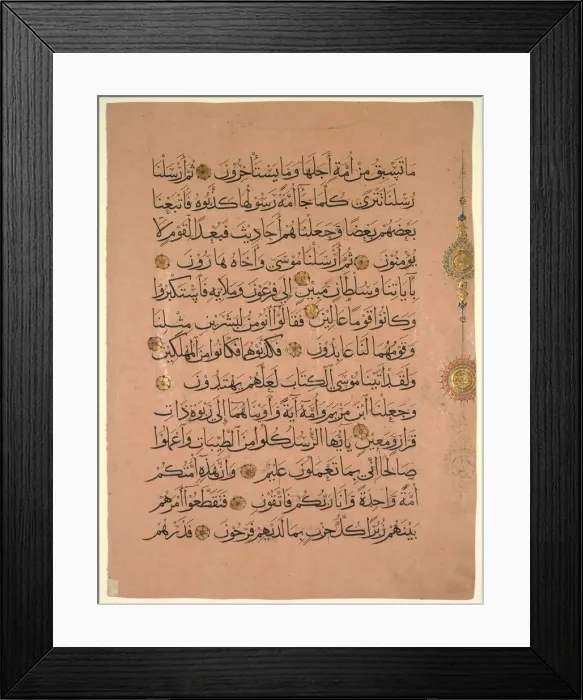 ما تسبق من أمة أجلها وما يستأخرون ثم أرسلنا
رسلنا تترى كلما جا أمة رسولها كذبوه فأتبعنا
بعضهم بعضا وجعلناهم أحاديث فبعدا لقوم لا
يؤمنون ثم أرسلنا موسى وأخاه هارون
بآياتنا وسلطان مبين إلى فرعون وملايه فاستكبروا
وكانوا قوما عالين فقالوا أنؤمن لبشرين مثلنا
وقومهما لنا عابدون فكذبوهما فكانوا من المهلكين
ولقد آتينا موسى الكتاب لعلهم يهتدون
وجعلنا ابن مريم وأمه آية وآويناهما إلى ربوة ذات
قرار ومعين يا أيها الرسل كلوا من الطيبات واعملوا
صالحا إني بما تعملون عليم وإن هذه أمتكم
أمة واحدة وأنا ربكم فاتقون فتقطعوا أمرهم
بينهم زبرا كل حزب بما لديهم فرحون فذرهم